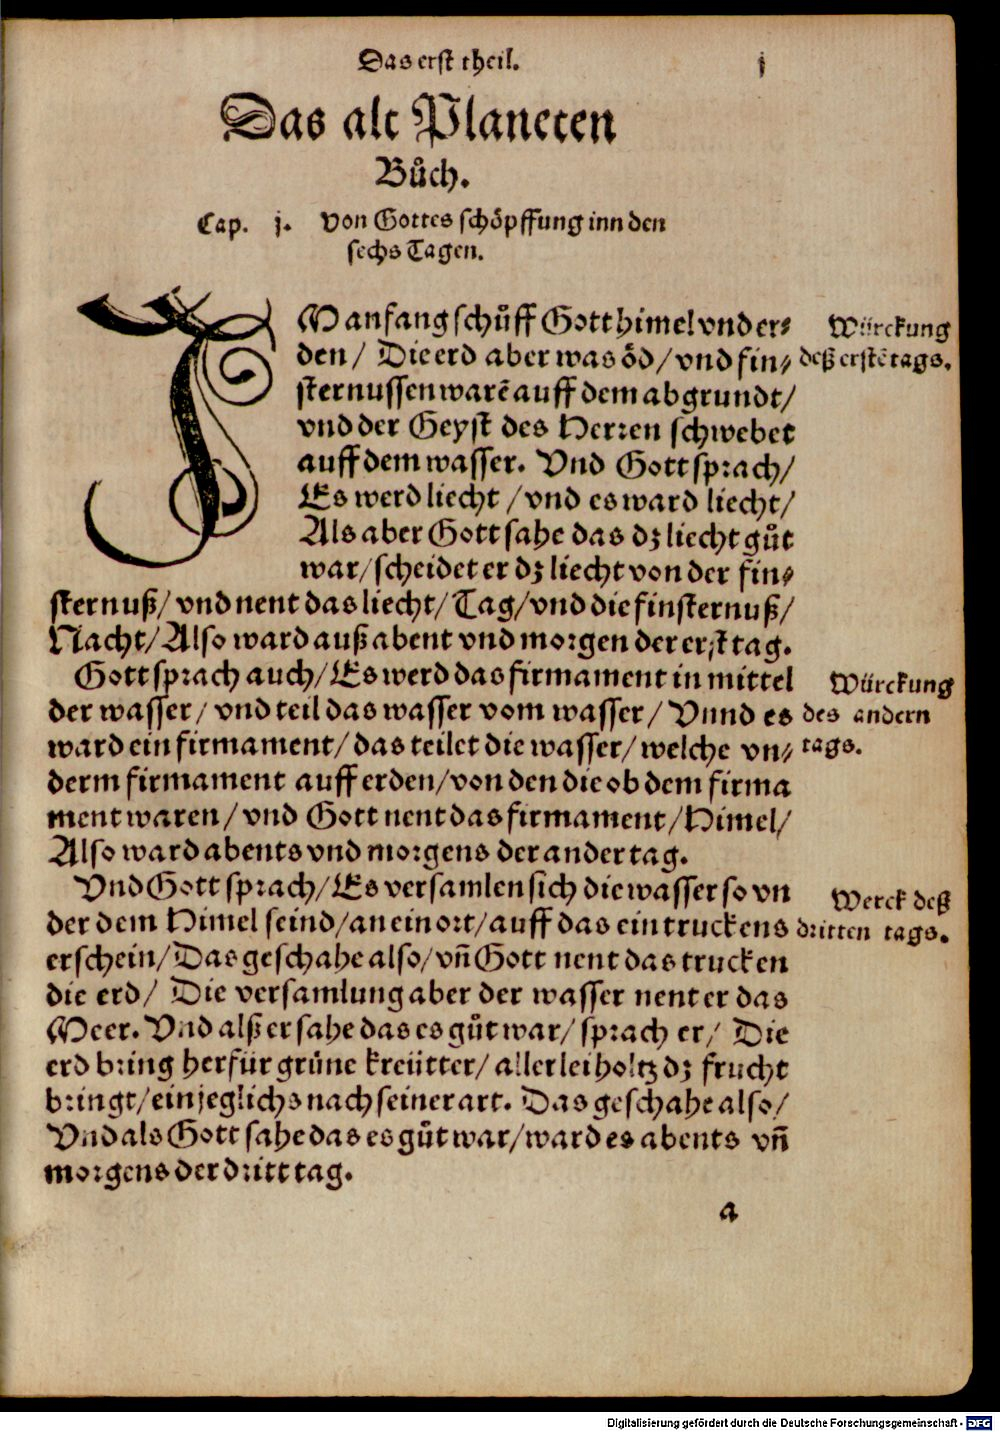 Das erst theil. j
Das alt Planeten
Bůch.
Cap. j. Von Gottes schöpffung inn den
sechs Tagen.
IM anfang schůff Gott himel vnd er⸗
den / Die erd aber was ôd / vnd fin⸗
sternussen warẽ auff dem abgrundt /
vnd der Geyst des Herren schwebet
auff dem wasser. Vnd Gott sprach /
Es werd liecht / vnd es ward liecht /
Als aber Gott sahe das dz liecht gůt
war / scheidet er dz liecht von der fin⸗
sternuß / vnd nent das liecht / Tag / vnd die finsternuß /
Nacht / Also ward auß abent vnd morgen der erst tag.
Würckung
deß erstẽ tags.
Gott sprach auch / Es werd das firmament in mittel
der wasser / vnd teil das wasser vom wasser / Vnnd es
ward ein firmament / das teilet die wasser / welche vn⸗
derm firmament auff erden / von den die ob dem firma
ment waren / vnd Gott nent das firmament / Himel /
Also ward abents vnd morgens der ander tag.
Würckung
des andern
tags.
Vnd Gott sprach / Es versamlen sich die wasser so vn
der dem Himel seind / an ein ort / auff das ein truckens
erschein / Das geschahe also / vñ Gott nent das trucken
die erd / Die versamlung aber der wasser nent er das
Meer. Vnd alß er sahe das es gůt war / sprach er / Die
erd bring herfür grüne kreütter / allerlei holtz dz frucht
bringt / ein jeglichs nach seiner art. Das geschahe also /
Vnd als Gott sahe das es gůt war / ward es abents vñ
morgens der dritt tag.
Werck deß
dritten tags.
a
Digitalisierung gefördert durch die Deutsche Forschungsgemeinschaft - DFG